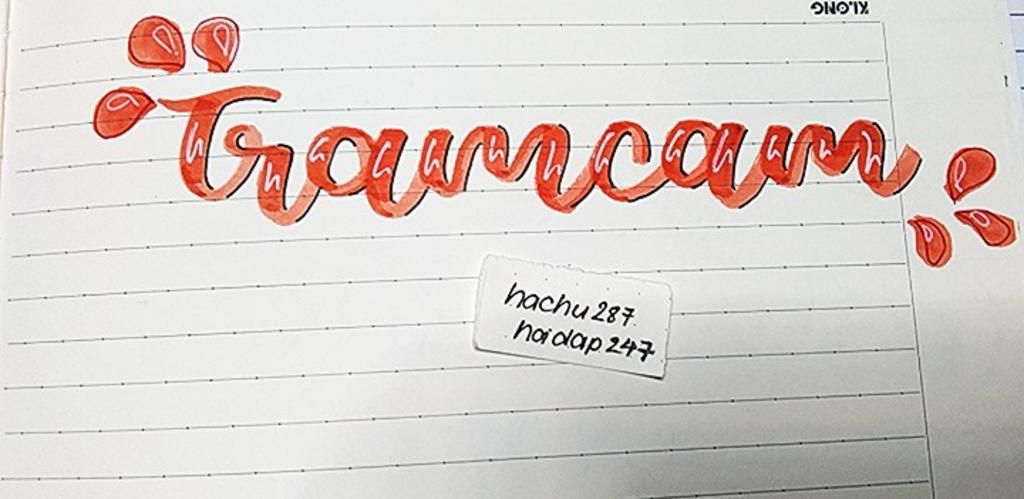 KLONG
Tramcam
hachu287
hoidap247